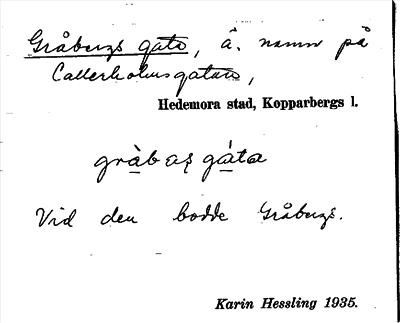 Gråbergs gata, ä. namn på
Callerholmsgatan,
Hedemora stad, Kopparbergs l.
Vid den bodde Gråbergs.
Karin Hessling 1935.